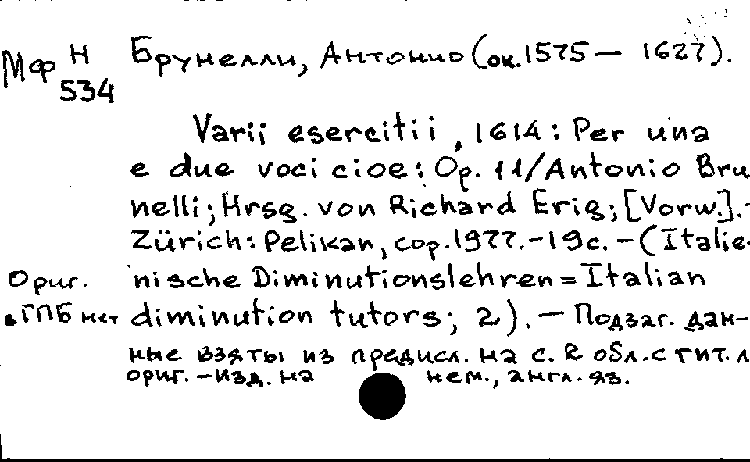 Мф Н Брунелли, Антонио (ок. 1575 — 1627).
534
Varii esercitii, 1614: Per una
e due voci cioe: Op. 11/Antonio Bru-
nelli; Hrsg. von Richard Erig; [Vorw.].-
Zürich: Pelikan, cop. 1977.-19с. -(Italie-
Ориг. nische Diminutionslehren = Italian
в ГПБ нет diminution tutors; 2). — Подзаг. дан-
ные взяты из предисл. на с. 2 обл. с тит. л.
ориг. - изд. на нем., англ. яз.